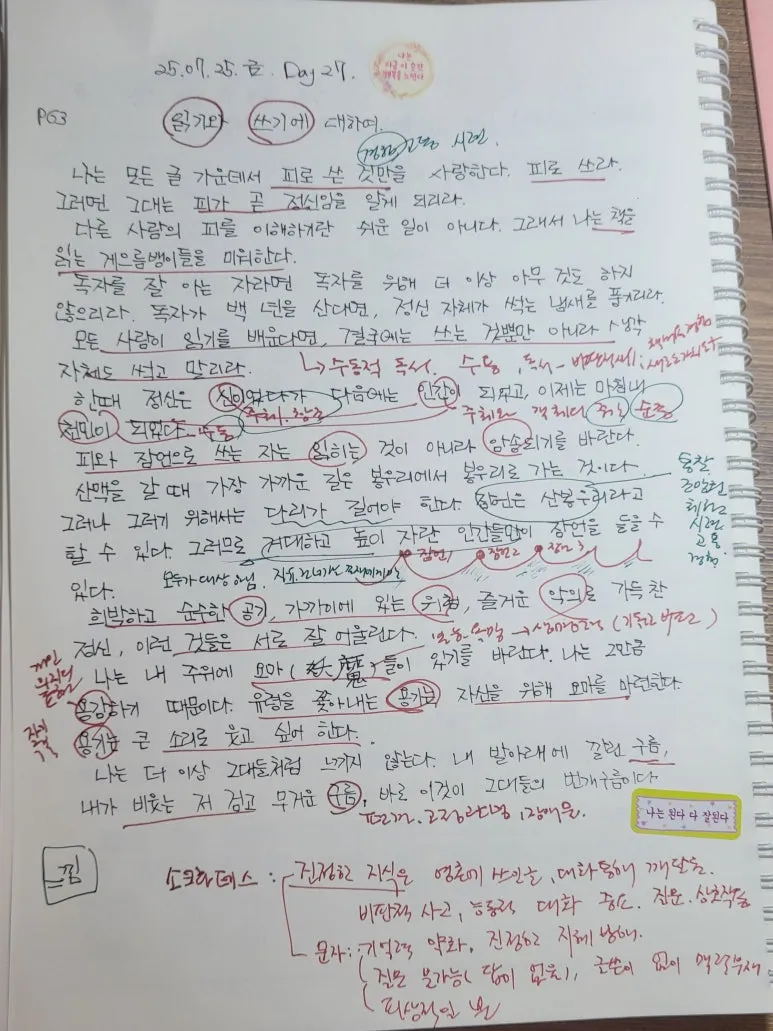 25.07.25.금. Day 27.
나는
지금 이 순간
행복을 느낀다
P63
읽기와 쓰기에 대하여.
경험, 고통, 시련
나는 모든 글 가운데서 피로 쓴 것만을 사랑한다. 피로 쓰라.
그러면 그대는 피가 곧 정신임을 알게 되리라.
다른 사람의 피를 이해하기란 쉬운 일이 아니다. 그래서 나는 책을
읽는 게으름뱅이들을 미워한다.
독자를 잘 아는 자라면 독자를 위해 더 이상 아무 것도 하지
않으리라. 독자가 백 년을 산다면, 정신 자체가 썩는 냄새를 풍기리라.
모든 사람이 읽기를 배운다면, 결국에는 쓰는 것뿐만 아니라 생각
자체도 썩고 말리라.
↳ 수동적 독서. 수용, 독서 - 비판
한때 정신은 신이었다가 다음에는 인간이 되었고, 이제는 마침내
주체, 창조
주체와 객체의
순종
천민이 되었다.
피와 잠언으로 쓰는 자는 읽히는 것이 아니라 암송되기를 바란다.
산맥을 갈 때 가장 가까운 길은 봉우리에서 봉우리로 가는 것이다.
통찰
그러나 그러기 위해서는 다리가 길어야 한다. 잠언은 산봉우리라고
시련
고통
경험
할 수 있다. 그러므로 거대하고 높이 자란 인간들만이 잠언을 들을 수
잠언1 잠언2 잠언3
있다.
모두가 대상 아님.
희박하고 순수한 공기, 가까이에 있는 위험, 즐거운 악의로 가득 찬
정신, 이런 것들은 서로 잘 어울린다.
나는 내 주위에 요마(妖魔)들이 있기를 바란다. 나는 그만큼
용감하기 때문이다. 유령을 쫓아내는 용기는 자신을 위해 요마를 마련한다.
용기는 큰 소리로 웃고 싶어 한다.
자기
극복
나는 더 이상 그대들처럼 느끼지 않는다. 내 발아래에 깔린 구름,
내가 비웃는 저 검고 무거운 구름, 바로 이것이 그대들의 번개구름이다.
편견, 고정관념, 장애물.
나는 된다 다 잘된다
느낌
소크라테스 : 진정한 지식은 영혼에 쓰인는, 대화통해 깨달음.
비판적 사고, 능동적 대화 중요. 질문. 상호작용
문자 : 기억력 약화, 진정한 지혜 방해.
질문 불가능(답이 없음), 글쓴이 없이 맥락부재
피상적인 본